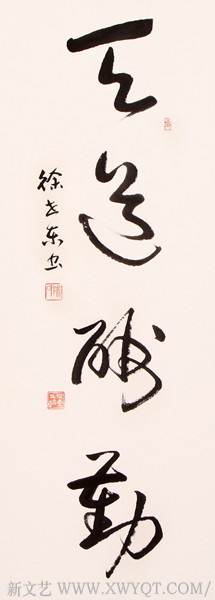 天道酬勤
徐世东书
新文艺 WWW.XWYQT.COM/